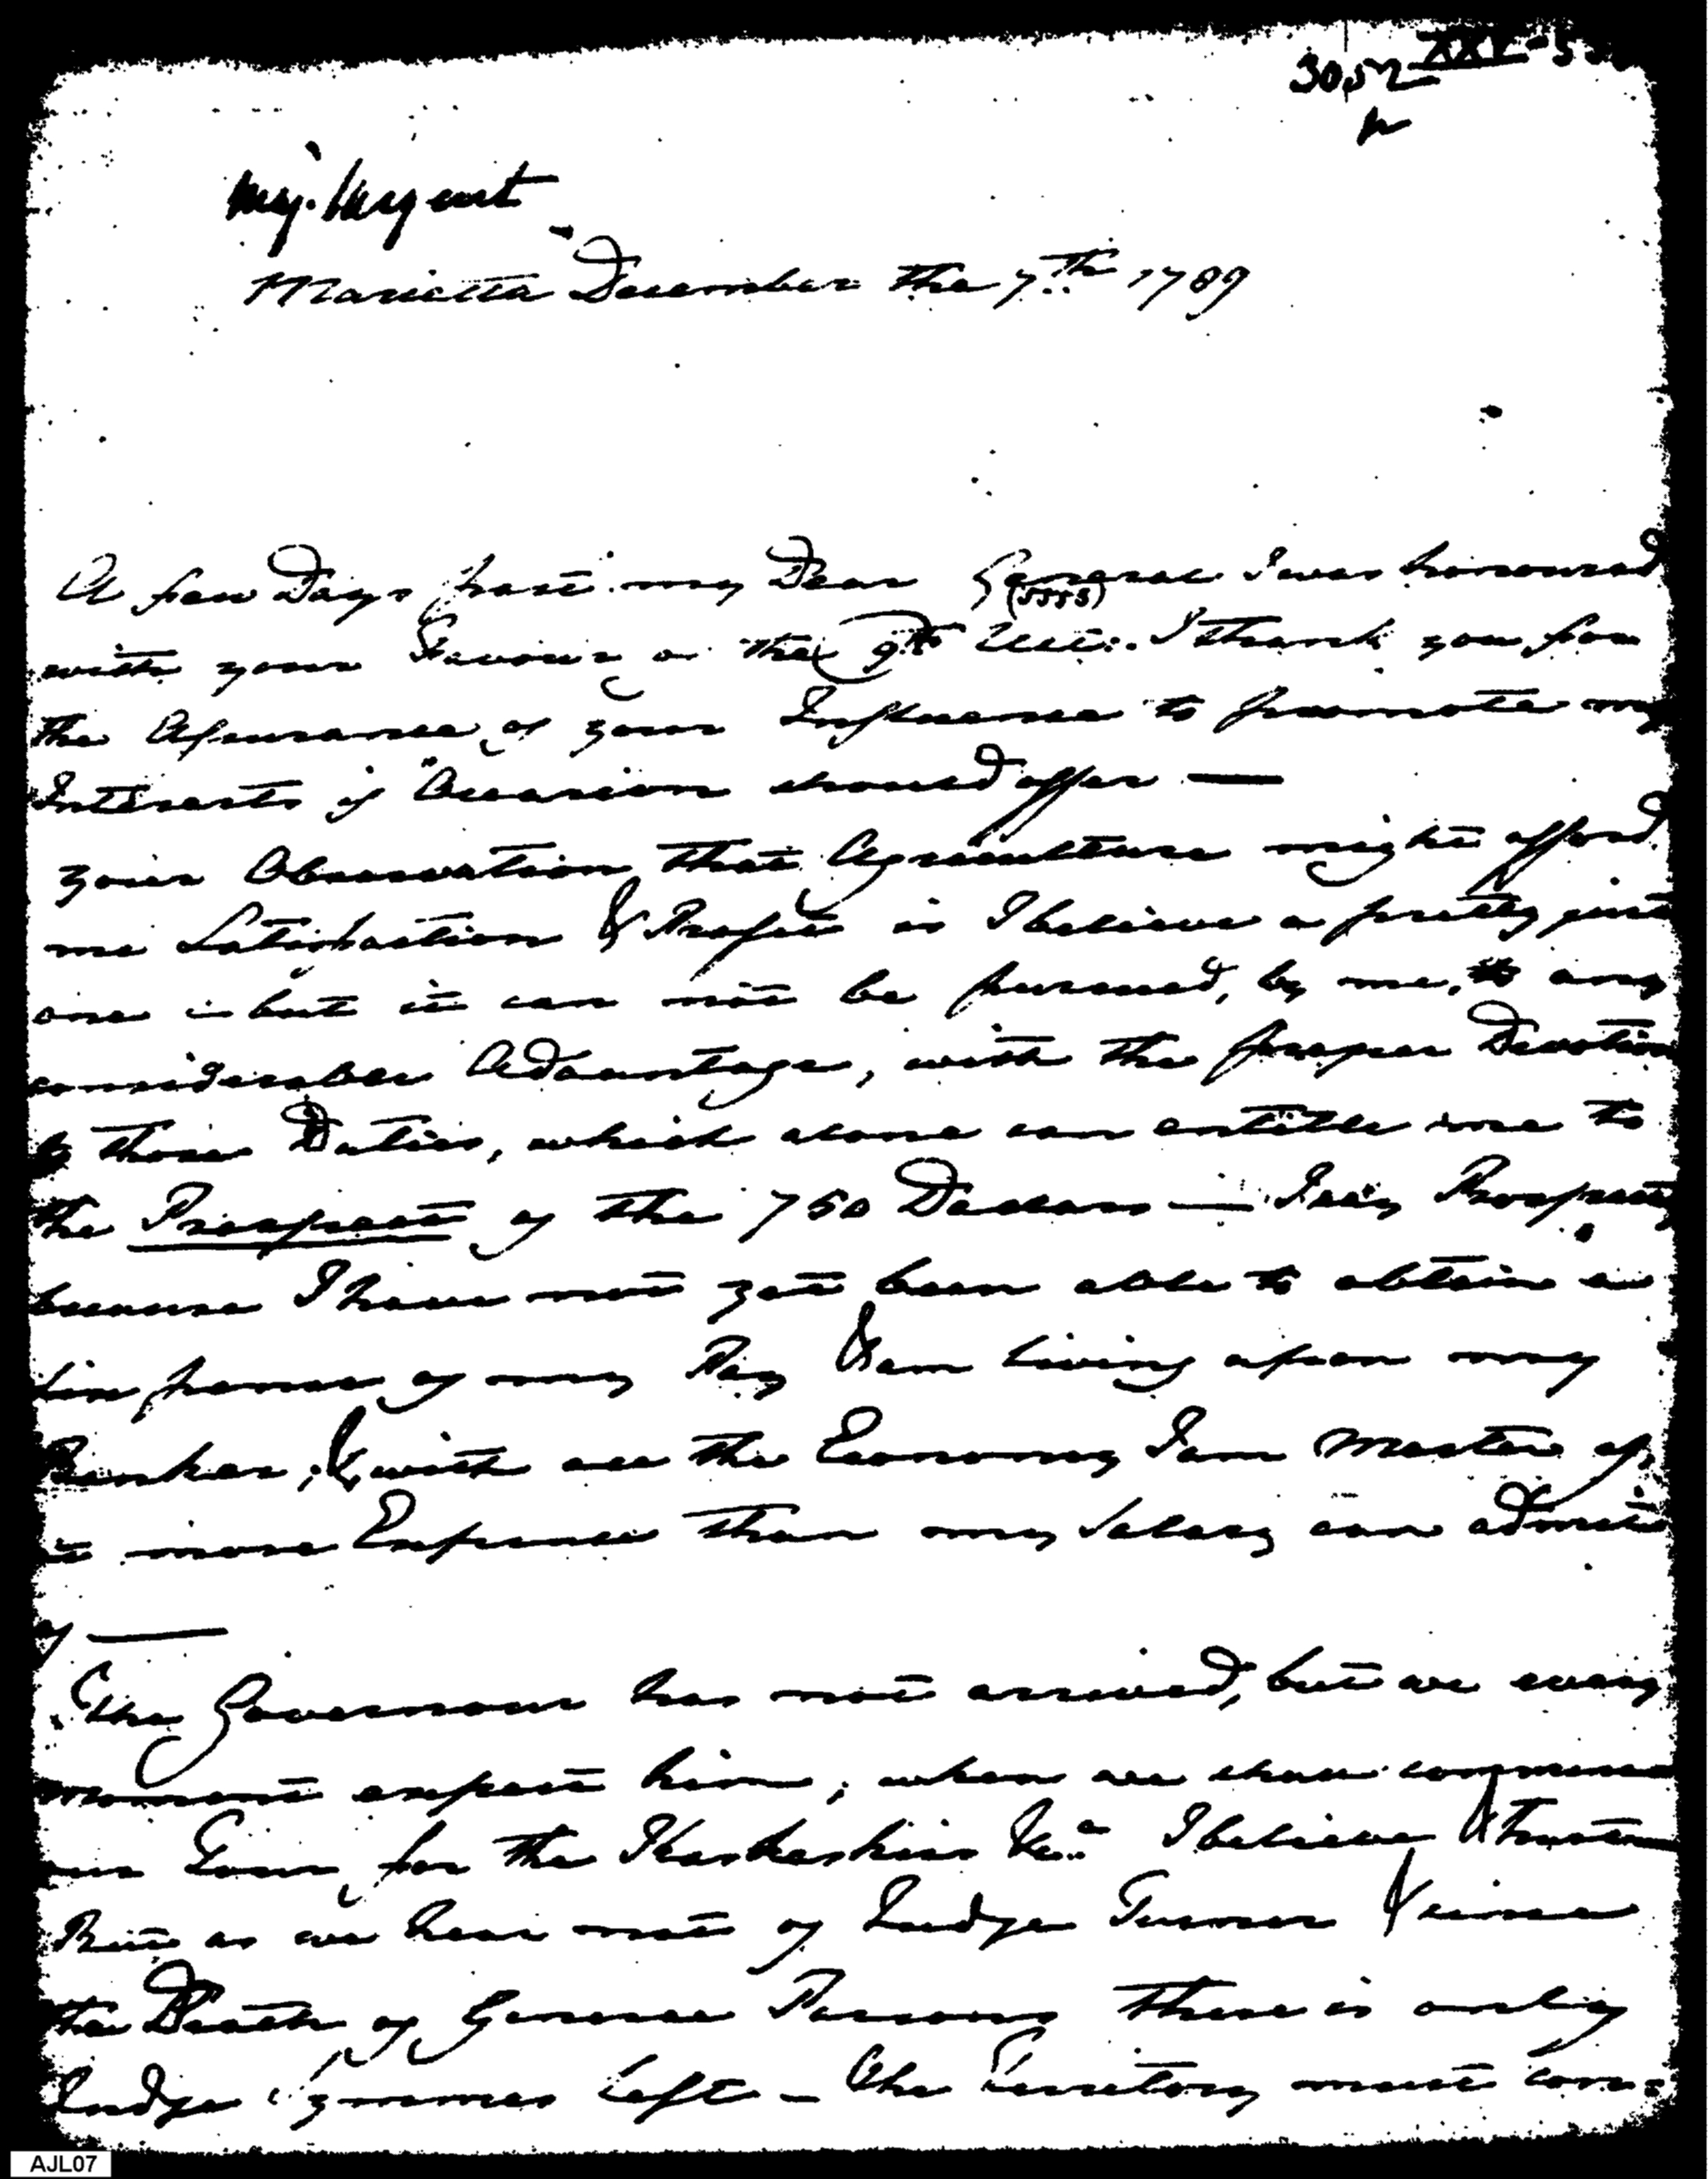 3052 XXV-5
Maj. Sargent
Marietta December the 7th 1789
A few Days past my Dear General I was honoured
(5553)
with your Favour of the 9th Ult: I thank you for
the Assurance of your Influence to promote my
Interests if Occasion should offer —
your Observation that Agriculture might afford
me Satisfaction & Profit is I believe a pretty just
one but it can not be pursued, by me, to any
considerable Advantage, with the proper Devotion
to those Duties, which alone can entitle me to
the Prospect of the 750 Dollars — I say Prospect,
because I have not yet been able to obtain a
sixpence of my Pay & am living upon my
Banker, & with all the Economy I am Master of,
at more Expence than my Salary can admit
of —
The Governour has not arrived, but we every
moment expect him; when we shall commence
our Tour for the Kaskaskias &ca I believe &
But as we hear not of Judge Turner & since
the Death of General Parsons there is only
Judge Symmes left – the Territory must con-
AJL07